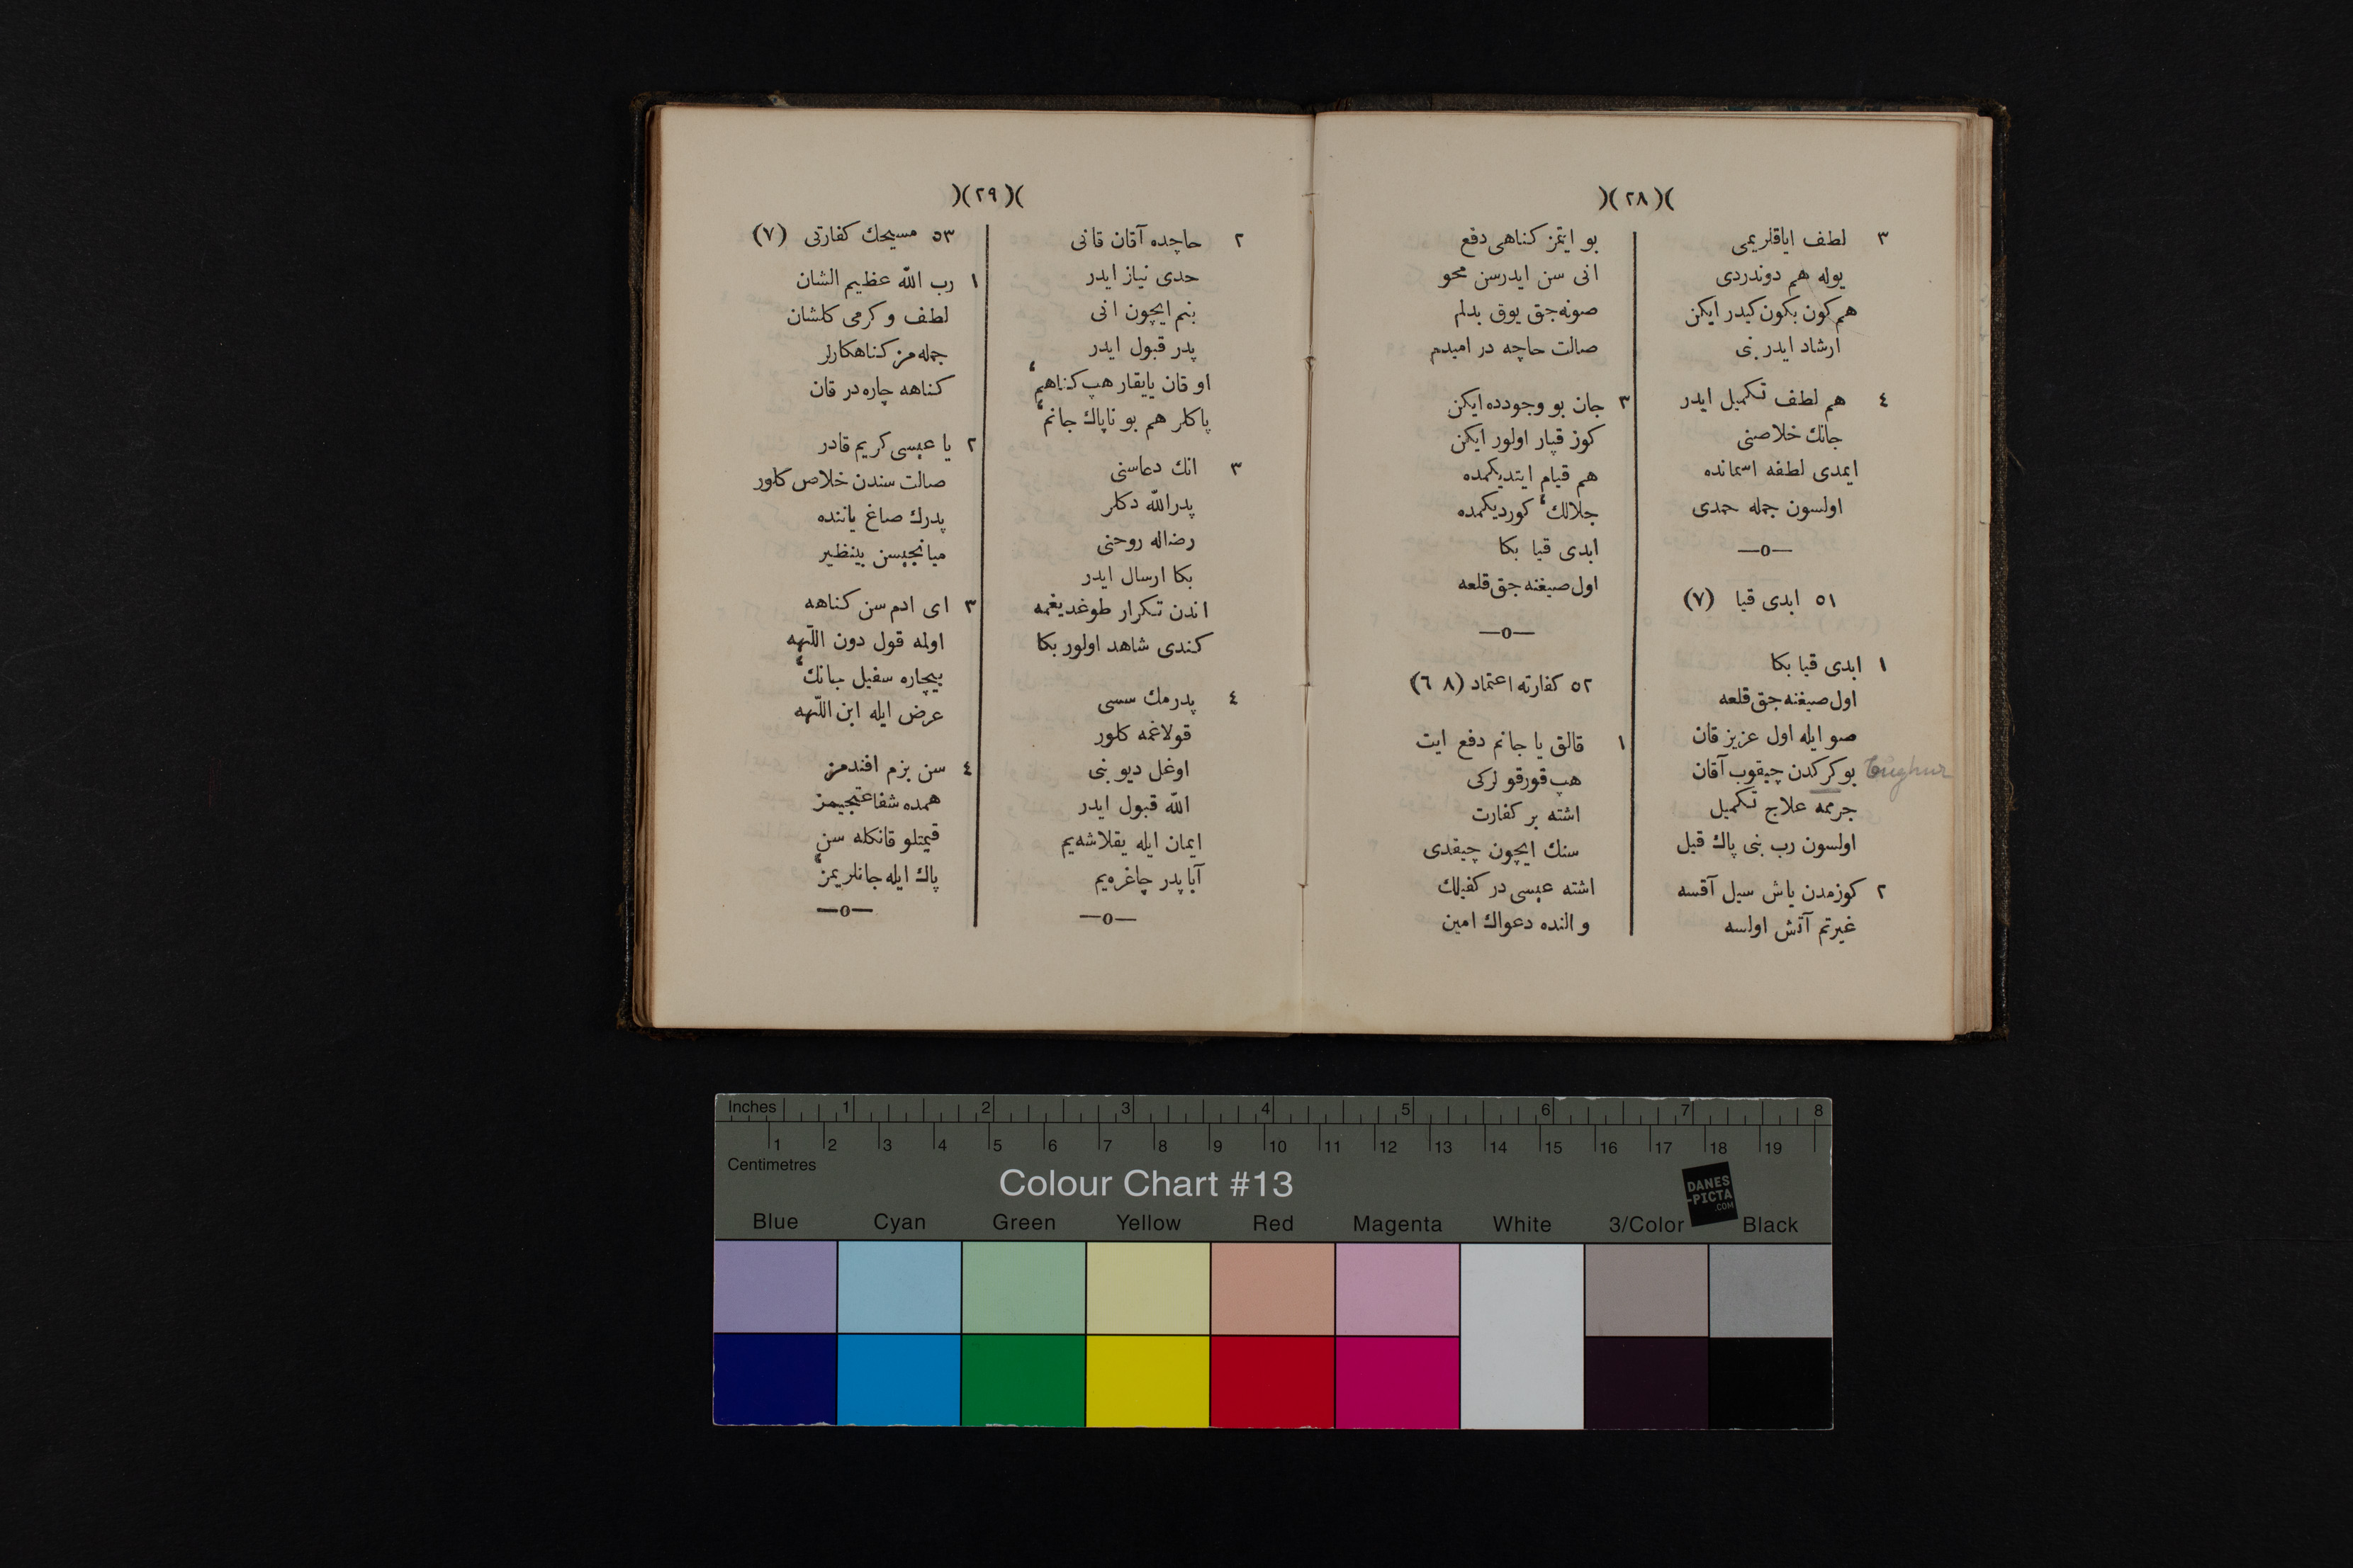 )(٢٨)(
٣ لطف اياقلريمى
يوله هم دوندردى
هم كون بكون كيدر ايكن
ارشاد ايدر بنى
٤ هم لطف تكميل ايدر
جانك خلاصنى
ايمدى لطفه اسمانده
اولسون جمله حمدى
—o—
٥١ ابدى قيا (٧)
١ ابدى قيا بكا
اول صيغنه جق قلعه
صو ايله اول عزيز قان
بو كركدن چيقوب آقان
جرممه علاج تكميل
اولسون رب بنى پاك قيل
٢ كوزمدن ياش سيل آقسه
غيرتم آتش اولسه
بو ايتمز كناهى دفع
انى سن ايدرسن محو
صونه جق يوق بدلم
صالت حاچه در اميدم
٣ جان بو وجودده ايكن
كوز قپار اولور ايكن
هم قيام ايتديكمده
جلالك كورديكمده
ابدى قيا بكا
اول صيغنه جق قلعه
—o—
٥٢ كفارته اعتماد (٨ ٦)
١ قالق يا جانم دفع ايت
هپ قورقو لركى
اشته بر كفارت
سنك ايچون چيقدى
اشته عيسى در كفيلك
و النده دعواك امين
)(٢٩)(
٢ حاچده آقان قانى
حدى نياز ايدر
بنم ايچون انى
پدر قبول ايدر
او قان ييقار هپ كناهم
پاكلر هم بو ناپاك جانم
٣ انك دعاسنى
پدر الله دكلر
رضاله روحنى
بكا ارسال ايدر
اندن تكرار طوغديغمه
كندى شاهد اولور بكا
٤ پدرمك سسى
قولاغمه كلور
اوغل ديو بنى
الله قبول ايدر
ايمان ايله يقلاشه يم
آبا پدر چاغره يم
—o—
٥٣ مسيحك كفارتى (٧)
١ رب الله عظيم الشان
لطف و كرمى كلشان
جمله مز كناهكارلر
كناهه چاره در قان
٢ يا عيسى كريم قادر
صالت سندن خلاص كلور
پدرك صاغ ياننده
ميانجيسن بينظير
٣ اى ادم سن كناهه
اولمه قول دون اللهه
بيچاره سفيل جانك
عرض ايله ابن اللهه
٤ سن بزم افندمز
همده شفاعتجيمز
قيمتلو قانكله سن
پاك ايله جانلريمز
—o—
Inches 1 2 3 4 5 6 7 8
1 2 3 4 5 6 7 8 9 10 11 12 13 14 15 16 17 18 19
Centimetres
Colour Chart #13
DANES
-PICTA
.COM
Blue Cyan Green Yellow Red Magenta White 3/Color Black